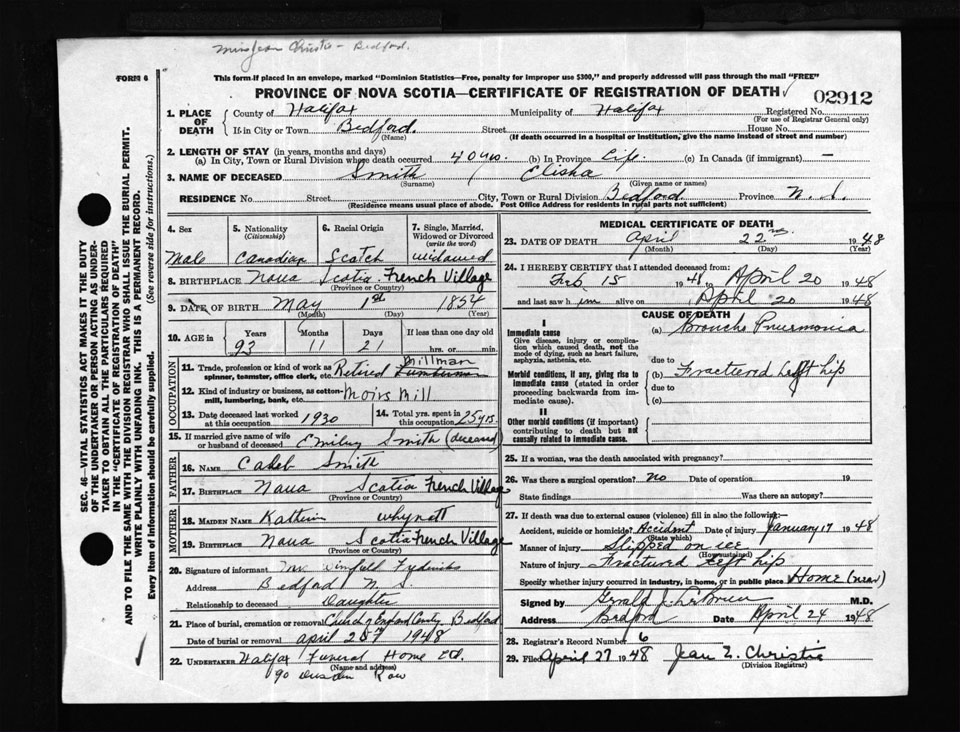 Miss Jean Christie - Bedford.
FORM 6
This form if placed in an envelope, marked "Dominion Statistics—Free, penalty for improper use $300," and properly addressed will pass through the mail "FREE"
PROVINCE OF NOVA SCOTIA—CERTIFICATE OF REGISTRATION OF DEATH
02912
SEC. 46—VITAL STATISTICS ACT MAKES IT THE DUTY
OF THE UNDERTAKER OR PERSON ACTING AS UNDER-
TAKER TO OBTAIN ALL THE PARTICULARS REQUIRED
IN THE "CERTIFICATE OF REGISTRATION OF DEATH"
AND TO FILE THE SAME WITH THE DIVISION REGISTRAR WHO SHALL ISSUE THE BURIAL PERMIT.
WRITE PLAINLY WITH UNFADING INK. THIS IS A PERMANENT RECORD.
Every item of information should be carefully supplied. (See reverse side for instructions.)
1. PLACE OF DEATH County of Halifax Municipality of Halifax Registered No.
(For use of Registrar General only)
If in City or Town Bedford. Street House No.
(Name) (If death occurred in a hospital or institution, give the name instead of street and number)
2. LENGTH OF STAY (in years, months and days)
(a) In City, Town or Rural Division where death occurred 40 yrs. (b) In Province Life. (c) In Canada (if immigrant) —
3. NAME OF DECEASED Smith / Elisha
(Surname) (Given name or names)
RESIDENCE No. Street City, Town or Rural Division Bedford. Province N. S.
(Residence means usual place of abode. Post Office Address for residents in rural parts not sufficient)
4. Sex 5. Nationality (Citizenship) 6. Racial Origin 7. Single, Married, Widowed or Divorced (write the word)
Male Canadian Scotch widowed
8. BIRTHPLACE Nova Scotia French Village
(Province or Country)
9. DATE OF BIRTH May 1st 1854
(Month) (Day) (Year)
10. AGE in Years Months Days If less than one day old
93 11 21 hrs. or min.
OCCUPATION
11. Trade, profession or kind of work as spinner, teamster, office clerk, etc. Retired Millman
12. Kind of industry or business, as cotton-mill, lumbering, bank, etc. Moirs Mill
13. Date deceased last worked at this occupation 1930 14. Total yrs. spent in this occupation 25 yrs.
15. If married give name of wife or husband of deceased Emiley Smith (deceased)
FATHER
16. NAME Caleb Smith
17. BIRTHPLACE Nova Scotia French Village
(Province or Country)
MOTHER
18. MAIDEN NAME Kathrin Whynott
19. BIRTHPLACE Nova Scotia French Village
(Province or Country)
20. Signature of informant Mrs. Winfield Fredericks
Address Bedford N S.
Relationship to deceased Daughter
21. Place of burial, cremation or removal Church of England Cemty. Bedford
Date of burial or removal april 25th 1948
22. UNDERTAKER Halifax Funeral Home Ltd.
(Name and address)
90 Row
MEDICAL CERTIFICATE OF DEATH
23. DATE OF DEATH April 22nd 1948
(Month) (Day) (Year)
24. I HEREBY CERTIFY that I attended deceased from:
Feb 15 1948 to April 20 1948
and last saw him alive on April 20 1948
CAUSE OF DEATH
I
Immediate cause (a) Broncho Pneumonia
Give disease, injury or complication which caused death, not the mode of dying, such as heart failure, asphyxia, asthenia, etc.
due to
Morbid conditions, if any, giving rise to immediate cause (stated in order proceeding backwards from immediate cause). (b) Fractured Left hip
due to
(c)
II
Other morbid conditions (if important) contributing to death but not causally related to immediate cause.
25. If a woman, was the death associated with pregnancy?
26. Was there a surgical operation? No Date of operation 19
State findings Was there an autopsy?
27. If death was due to external causes (violence) fill in also the following:—
Accident, suicide or homicide? Accident Date of injury January 17 1948
(State which)
Manner of injury Slipped on ice
(How sustained)
Nature of injury Fractured Left hip
Specify whether injury occurred in industry, in home, or in public place Home (near)
Signed by Gerald J. LeBrun M.D.
Address Bedford Date April 24 1948
28. Registrar's Record Number 6
29. Filed April 27 1948 Jean Z. Christie
(Division Registrar)